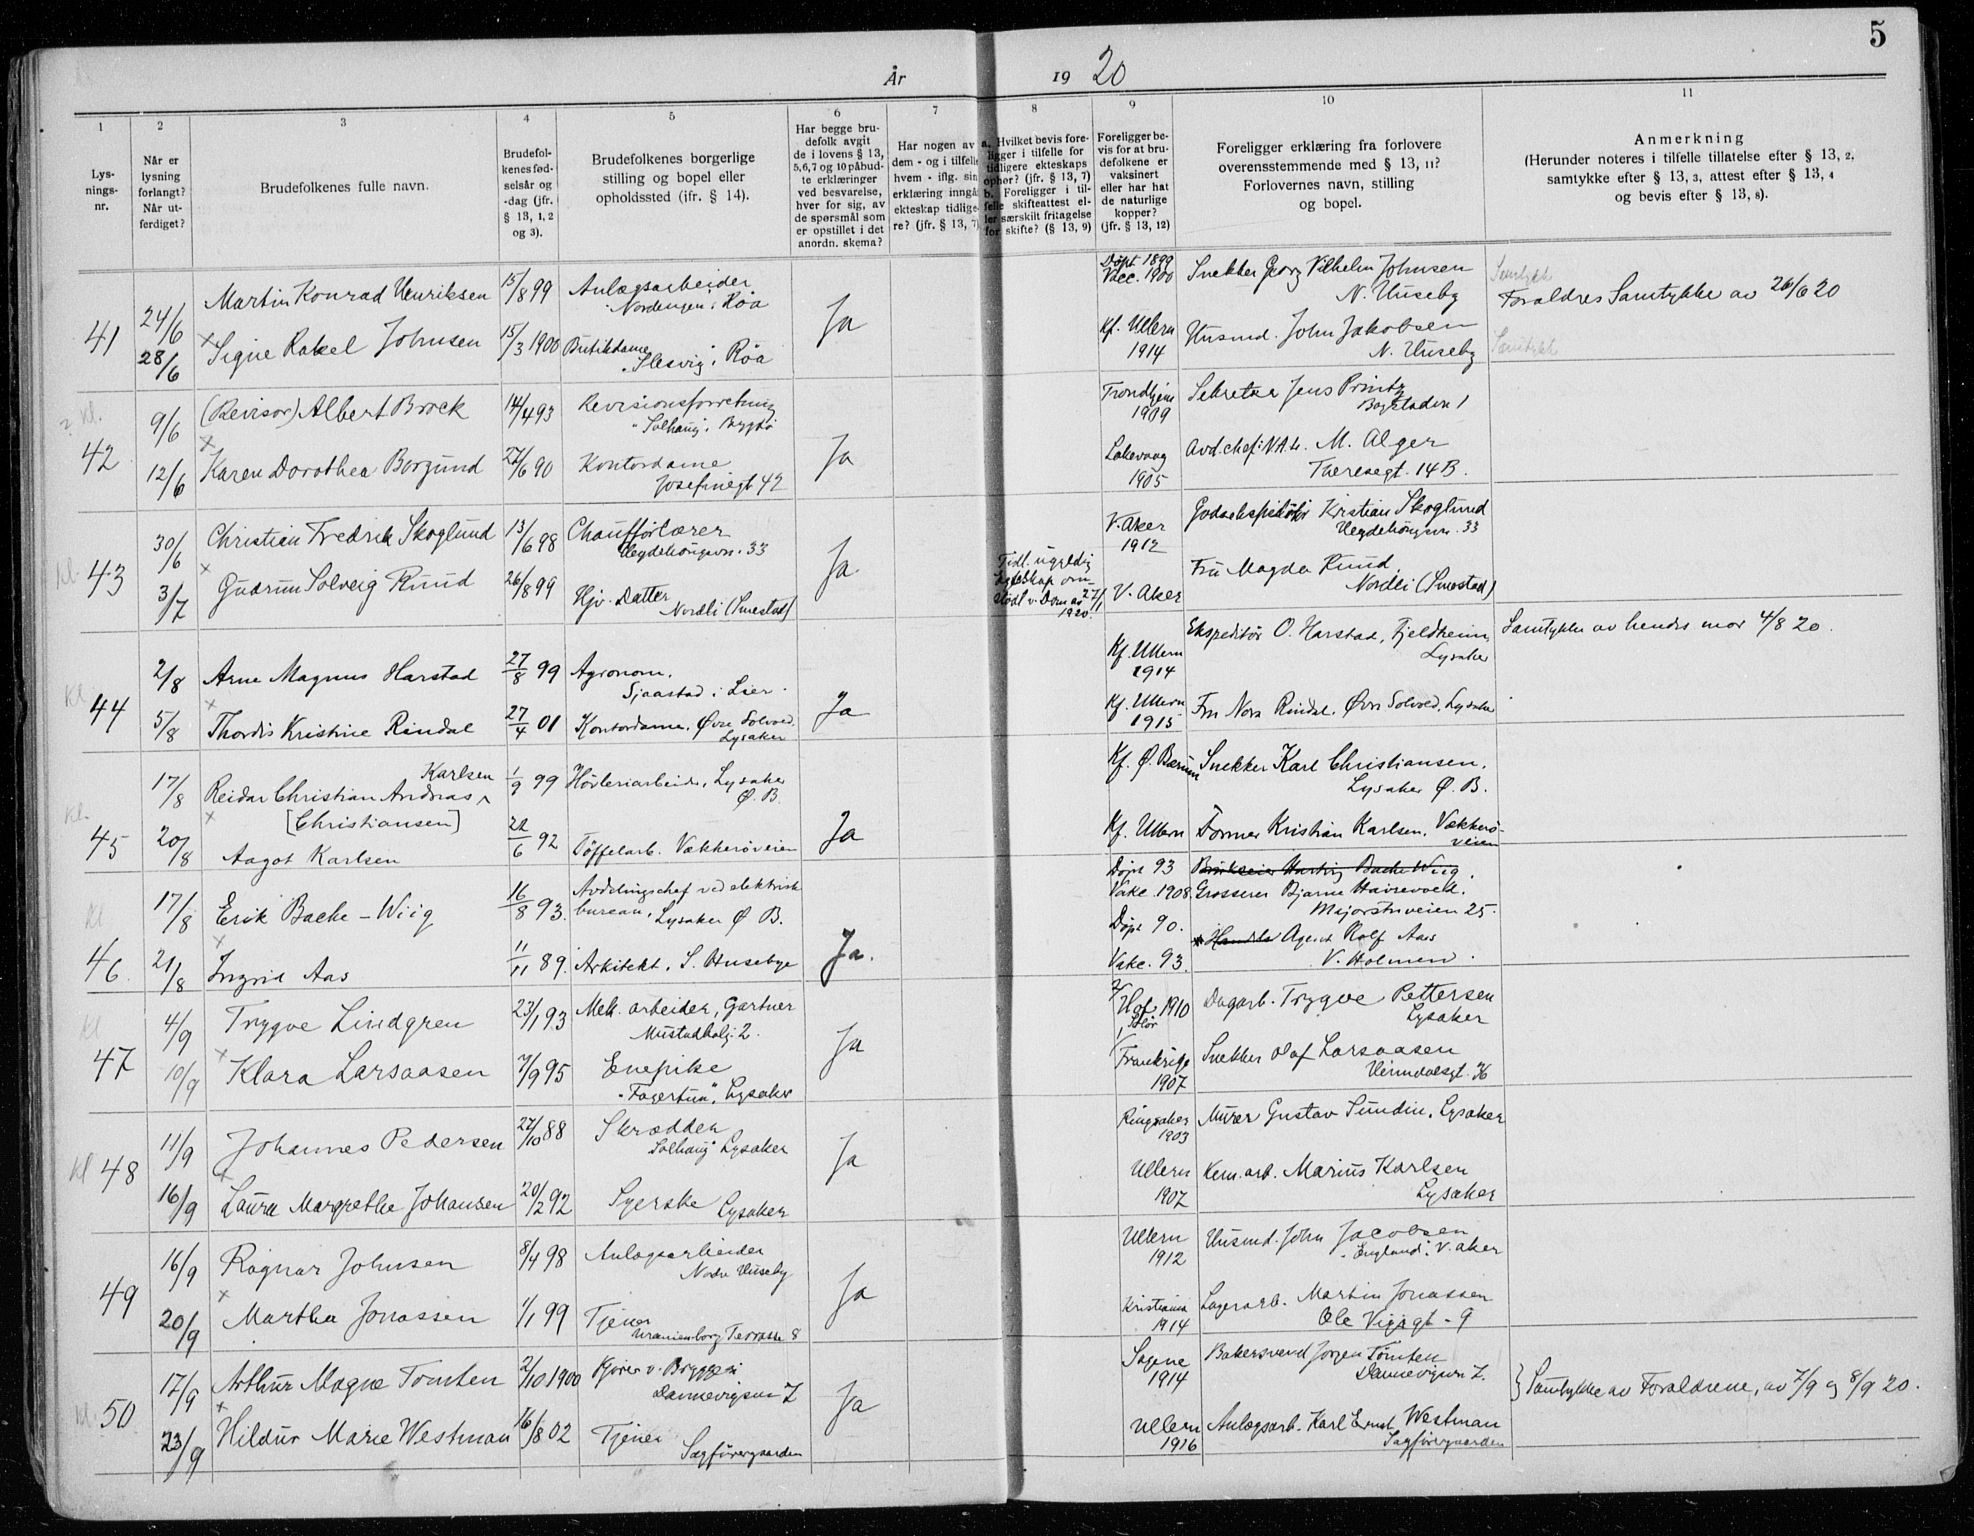 5
År 1920
1
Lysningsnr.
2
Når er
lysning
forlangt?
Når utferdiget?
3
Brudefolkenes fulle navn.
4
Brudefolkenes fødselsår og
-dag (jfr.
§ 13, 1, 2
og 3).
5
Brudefolkenes borgerlige
stilling og bopel eller
opholdssted (ifr. § 14).
6
Har begge brudefolk avgit
de i lovens § 13,
5,6,7 og 10 påbudte erklæringer
ved besvarelse,
hver for sig, av
de spørsmål som
er opstillet i det
anordn. skema?
7
Har nogen av
dem - og i tilfelle
hvem - iflg. sin
erklæring inngå
ekteskap tidligere? (jfr. § 13, 7)
8
a. Hvilket bevis foreligger i tilfelle for
tidligere ekteskaps
ophør? (jfr. § 13, 7)
b. Foreligger i tilfelle skifteattest eller særskilt fritagelse
for skifte? (§ 13, 9)
9
Foreligger bevis for at brudefolkene er
vaksinert
eller har hat
de naturlige
kopper?
(jfr. § 13, 12)
10
Foreligger erklæring fra forlovere
overensstemmende med § 13, 11?
Forlovernes navn, stilling
og bopel.
11
Anmerkning
(Herunder noteres i tilfelle tillatelse efter § 13, 2,
samtykke efter § 13, 3, attest efter § 13, 4
og bevis efter § 13, 8).
41
24/6
28/6
Martin Konrad Henriksen
15/8 99
Anlægsarbeider
Nordengen, Røa
Ja
Døpt 1899
Vacc. 1900
Snekker Georg Vilhelm Johnsen
N. Huseby
Samtykke
Foraldres Samtykke av 26/6 20
x
Signe Rakel Johnsen
15/3 1900
Butikdame
"Slesvig", Røa
Kf. Ullern
1914
Husmd. John Jakobsen
N. Huseby
Samtykk
2 Kl.
42
9/6
12/6
(Revisor) Albert Brock
14/4 93
Revisionsforretning
"Solhaug", Bygdø
Ja
Trondhjem
1909
Sekretær Jens Printz
Bogstadvn 1
x
Karen Dorothea Borgund
27/6 90
Kontordame
Josefinegt 42
Laksevaag
1905
Avd.chef: V.A.L. M. Alger
Theresegt. 14 B.
Kl.
43
30/6
3/7
Christian Fredrik Skoglund
13/6 98
Chaufførlærer
Hegdehaugsvn. 33
Ja
V. Aker
1912
Godsekspeditør Kristian Skoglund
Hegdehaugsvn. 33
x
Gudrun Solveig Ruud
26/8 99
Hjv. Datter
Nordli (Smestad)
Tidl. ugyldig
egteskap omstødt v. Dom av 27/1
1920.
V. Aker
Fru Magda Ruud
Nordli (Smestad)
Kl
44
2/8
5/8
Arne Magnus Harstad
27/8 99
Agronom.
Sjaastad i Lier.
Ja
Kf. Ullern
1914
Ekspeditør O. Harstad, Fjeldheim,
Lysaker
Samtykke av hendes mor 4/8 20.
x
Thordis Kristine Rindal
27/4 01
Kontordame, Øvre Solved.
Lysaker
Kf. Ullern
1915
Fru Nora Rindal, Øvre Solved, Lysaker
Kl.
45
17/8
20/8
Karlsen
Reidar Christian Andreas ^
[Christiansen]
1/9 99
Høvleriarbeider, Lysaker
Ø. B.
Ja
Kf. Ø. Bærum
Snekker Karl Christiansen.
Lysaker Ø. B.
x
Aagot Karlsen
22/6 92
Tøffelarb. Vækkerøveien
Kf. Ullern
Former Kristian Karlsen, Vækkerø-
veien
Kl
46.
17/8
21/8
Erik Bache-Wiig
16/8 93.
Avdelingschef ved elektrisk
bureau, Lysaker Ø B.
Ja.
Døpt 93
Vakc. 1908.
Brukseier Hartvig Bache Wiig.
Grosserer Bjarne Hairevold.
Majorstuveien 25.
x
Ingrid Aas
11/11 89.
Arkitekt. S. Husebye
Døpt 90.
Vakc. 93.
Handels Agent Rolf Aas
V. Holmen.
Kl
47
4/9
10/9
Trygve Lindgren
23/1 93
Mek. arbeider, Gartner
Mustadbolig 2.
Ja
Hof 1910
Solør
Dagarb. Trygve Pettersen
Lysaker
x
Klara Larsaasen
7/9 95
Enepike
"Fagertun", Lysaker
Frankrige
1907
Snekker Olaf Larsaasen
Heimdalsgt. 36
Kl
48
11/9
16/9
Johannes Pedersen
27/10 88
Skrædder
Solhaug Lysaker
Ja
Ringsaker
1903
Murer Gustav Sundin, Lysaker
x
Laura Margrethe Johansen
20/2 92
Syerske Lysaker
Ullern
1907
Kem. arb. Marius Karlsen
Lysaker
49
16/9
20/9
Ragnar Johnsen
8/4 98
Anlægsarbeider
Nedre Huseby
Ja
Ullern
1912
Husmd. John Jacobsen
"England", V. Aker
x
Martha Jonassen
1/1 99
Tjener
Uranienborg Terrasse 8
Kristiania
1914
Lagerarb. Martin Jonassen
Ole Vigsgt - 9
Kl.
50
17/9
23/9
Arthur Magne Tomten
2/10 1900
Kjører v. Bryggeri
Dannevigsvn 7
Ja
Sagene
1914
Bakersvend Jørgen Tomten
Dannevigsvn 7.
} Samtykke av Foraldrene, av 7/9 og 8/9 20.
x
Hildur Marie Westman
16/8 02
Tjener
Sagførergaarden
Ullern
1916
Anlægsarb. Karl Ernst Westman
Sagførergaarden